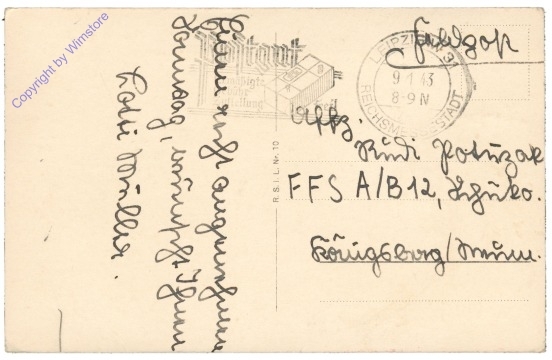 Copyright by Wimstore
Feldpost
LEIPZIG N 31
9 1 43
8-9 N
REICHSMESSESTADT
Postamt
Uffz.
Rudi Potuzak
FFS A/B 12, Schüko.
Königsberg/Neum.
R.S.i.L. Nr. 10
Einen recht angenehmen
Sonntag, wünscht Ihnen
Lotti Müller.